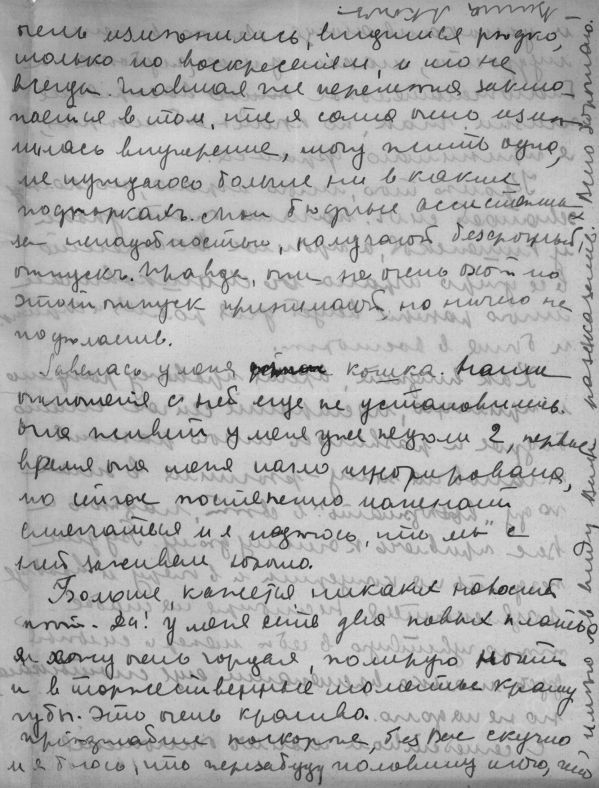 очень изменились, видимся редко,
только по воскресеньям, и то не
всегда. Главная же перемена заклю-
чается в том, что я сама очень изме-
нилась внутренне, могу жить одна,
не нуждаюсь больше ни в каких
подпорках. Мои бедные ассистенты
за ненадобностью, получают безсрочный
отпуск. Правда, они не очень охотно
этот отпуск принимают, но ничего не
поделаешь.
Завелась у меня кошка. Наши
отношения с ней еще не установились.
Она живет у меня уже недели 2, первое
время она меня нагло игнорировала,
но сейчас постепенно начинает
смягчаться и я надеюсь, что мы с
ней заживем хорошо.
Больше, кажется никаких новостей
нет. Да! у меня есть два новых платья
я хожу очень гордая, полирую ногти
и в торжественные моменты крашу
губы. Это очень красиво.
Приезжайте поскорее, без Вас скучно
и я боюсь, что перезабуду половину того, что
имею в виду Вам рассказать.